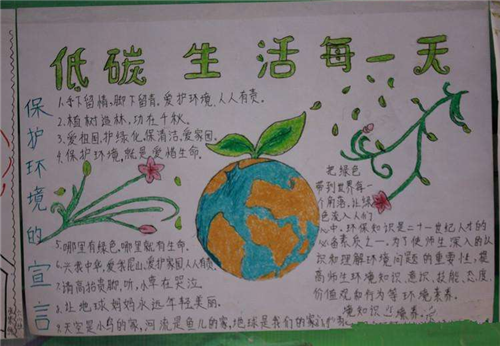 低碳生活每一天
保护环境的宣言
1.手下留情,脚下留青,爱护环境,人人有责。
2.植树造林,功在千秋。
3.爱祖国,护绿化,保清洁,爱家园。
4.保护环境,就是爱惜生命。
5.哪里有绿色,哪里就有生命。
爱护家园人人有责
7.请高抬贵脚,听,小草在哭泣。
8.让地球妈妈永远年轻美丽。
9.天空是小鸟的家,河流是鱼儿的家,地球是我们的家
把绿色
带到世界每一
个角落,让绿
色流入人们
心中.环保知识是二十一世纪人才的
必备素质之一,为了使师生深入的认
识和理解环境问题的重要性,提
高师生环境知识、意识、技能、态度、
价值观和行为等环境素养。